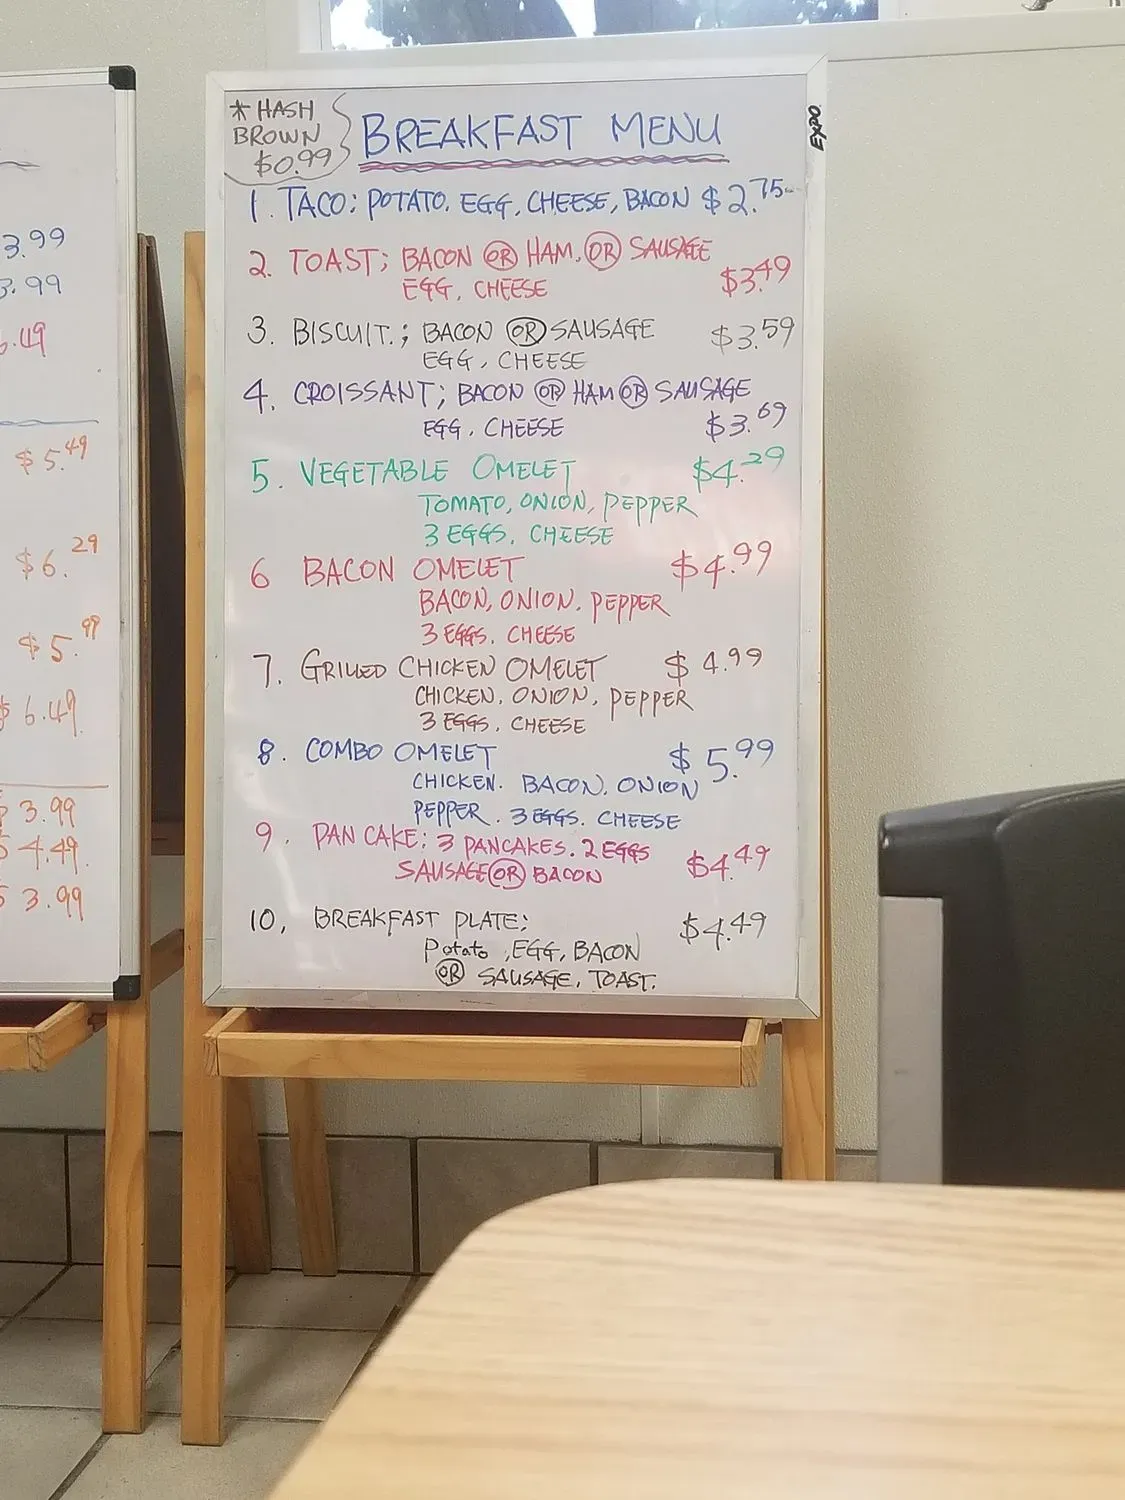 3.99
3.99
6.49
$5.49
$6.29
$5.99
$6.49
$3.99
$4.49
$3.99
* HASH
BROWN
$0.99
BREAKFAST MENU
EXPO
1. TACO: POTATO. EGG, CHEESE, BACON $2.75
2. TOAST; BACON OR HAM, OR SAUSAGE
EGG, CHEESE $3.49
3. BISCUIT.; BACON OR SAUSAGE $3.59
EGG, CHEESE
4. CROISSANT; BACON OR HAM OR SAUSAGE
EGG, CHEESE $3.69
5. VEGETABLE OMELET $4.29
TOMATO, ONION, PEPPER
3 EGGS, CHEESE
6 BACON OMELET $4.99
BACON, ONION. PEPPER
3 EGGS. CHEESE
7. GRILLED CHICKEN OMELET $4.99
CHICKEN. ONION, PEPPER
3 EGGS. CHEESE
8. COMBO OMELET $5.99
CHICKEN. BACON. ONION
PEPPER. 3 EGGS. CHEESE
9. PAN CAKE: 3 PANCAKES. 2 EGGS
SAUSAGE OR BACON $4.49
10, BREAKFAST PLATE; $4.49
Potato, EGG, BACON
OR SAUSAGE, TOAST.